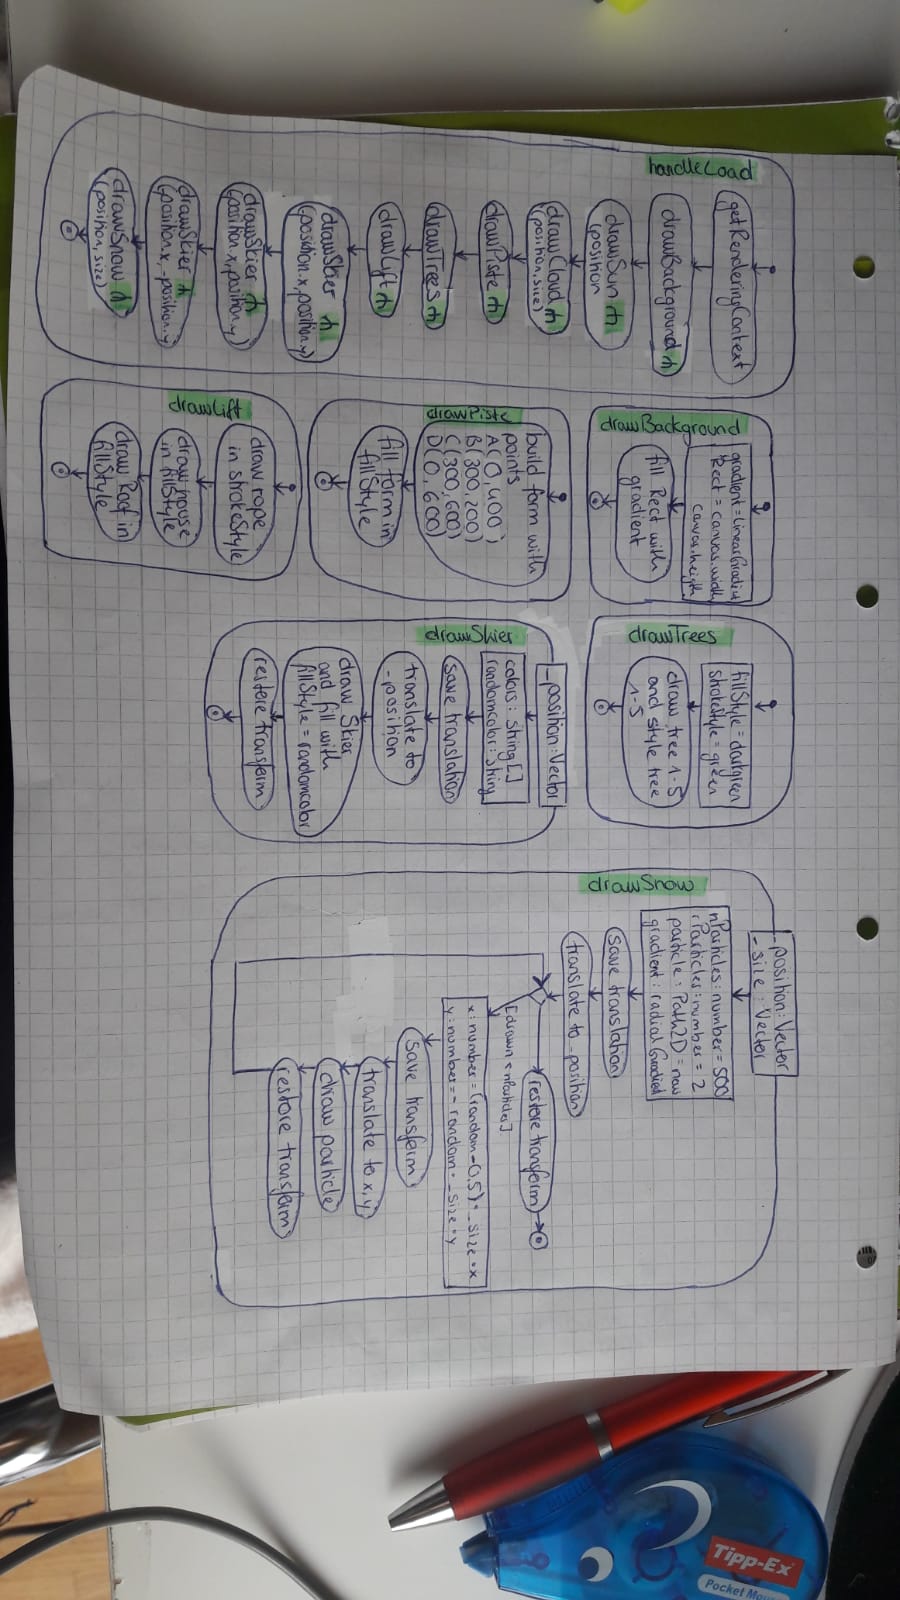 handleLoad
getRenderingContext
drawBackground
drawSun
(position
drawCloud
(position, size)
drawPiste
drawTrees
drawLyft
drawSkier
(position.x, position.y)
drawSkier
(position.x, position.y)
drawSkier
(position.x, -position.y)
drawSnow
(position, size)
drawBackground
gradient = LinearGradient
Rect = canvas.width
canvas.heigth
fill Rect with
gradient
drawPiste
build form with
points
A(0,400)
B(300,200)
C(300,600)
D(0,600)
fill form in
fillStyle
drawLift
draw rope
in strokeStyle
draw house
in fillStyle
draw Roof in
fillStyle
drawTrees
fillStyle = darkgreen
strokeStyle = green
draw tree 1-5
and style tree
1-5
drawSkier
_position: Vector
colors: String[]
randomcolor: String
save translation
translate to
-position
draw Skier
and fill with
fillStyle = randomcolor
restore transform
drawSnow
-position: Vector
-size: Vector
nParticles: number = 500
rParticles: number = 2
particle: Path2D = new
gradient: radialGradient
save translation
translate to _position
restore transform
[drawn < nParticles]
x: number = (random - 0,5) * _size * x
y: number = - random * _size * y
save transform
translate to x, y
draw particle
restore transform
Tipp-Ex
Pocket Mou